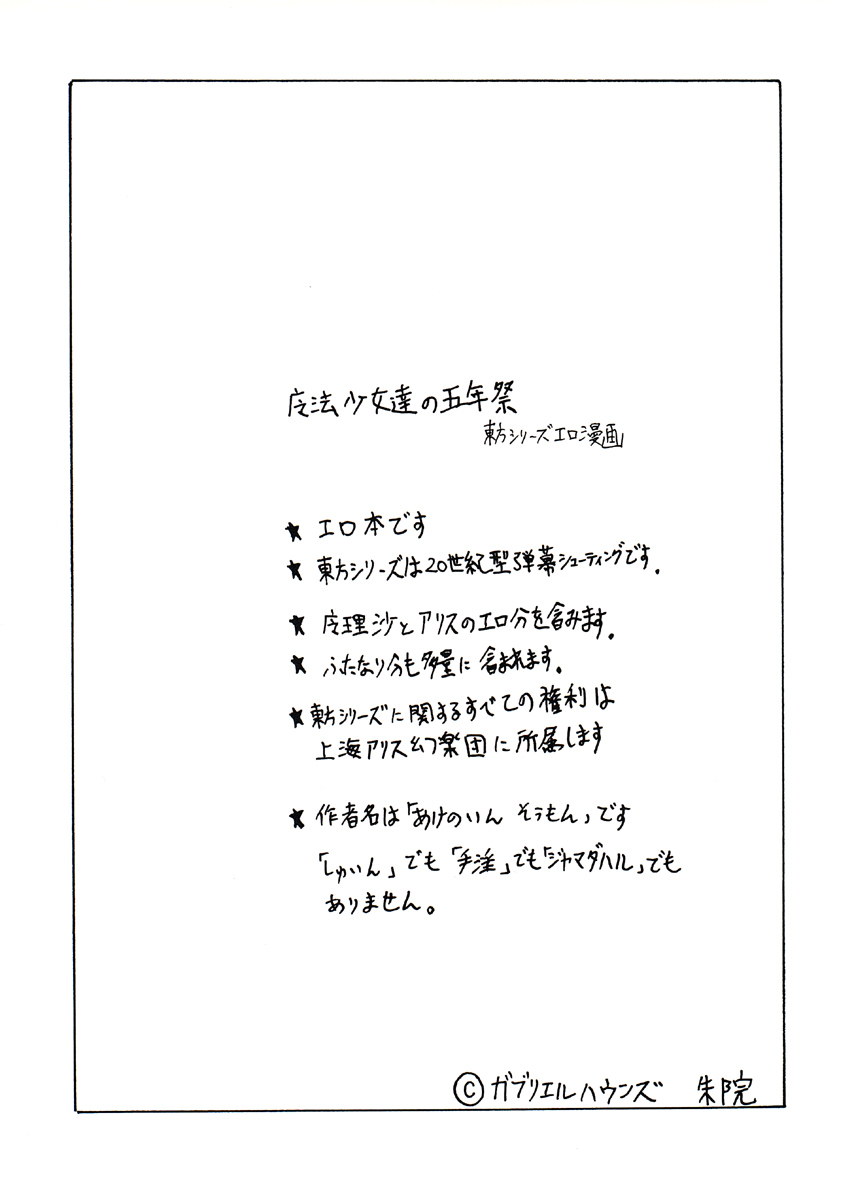 魔法少女達の五年祭
東方シリーズエロ漫画
★ エロ本です
★ 東方シリーズは20世紀型弾幕シューティングです。
★ 魔理沙とアリスのエロ分を含みます。
★ ふたなり分も多量に含まれます。
★東方シリーズに関するすべての権利は
上海アリス幻樂団に所属します
★ 作者名は「あけのいん そうもん」です
「しゅいん」でも「手淫」でも「ジャマダハル」でも
ありません。
©ガブリエルハウンズ 朱院